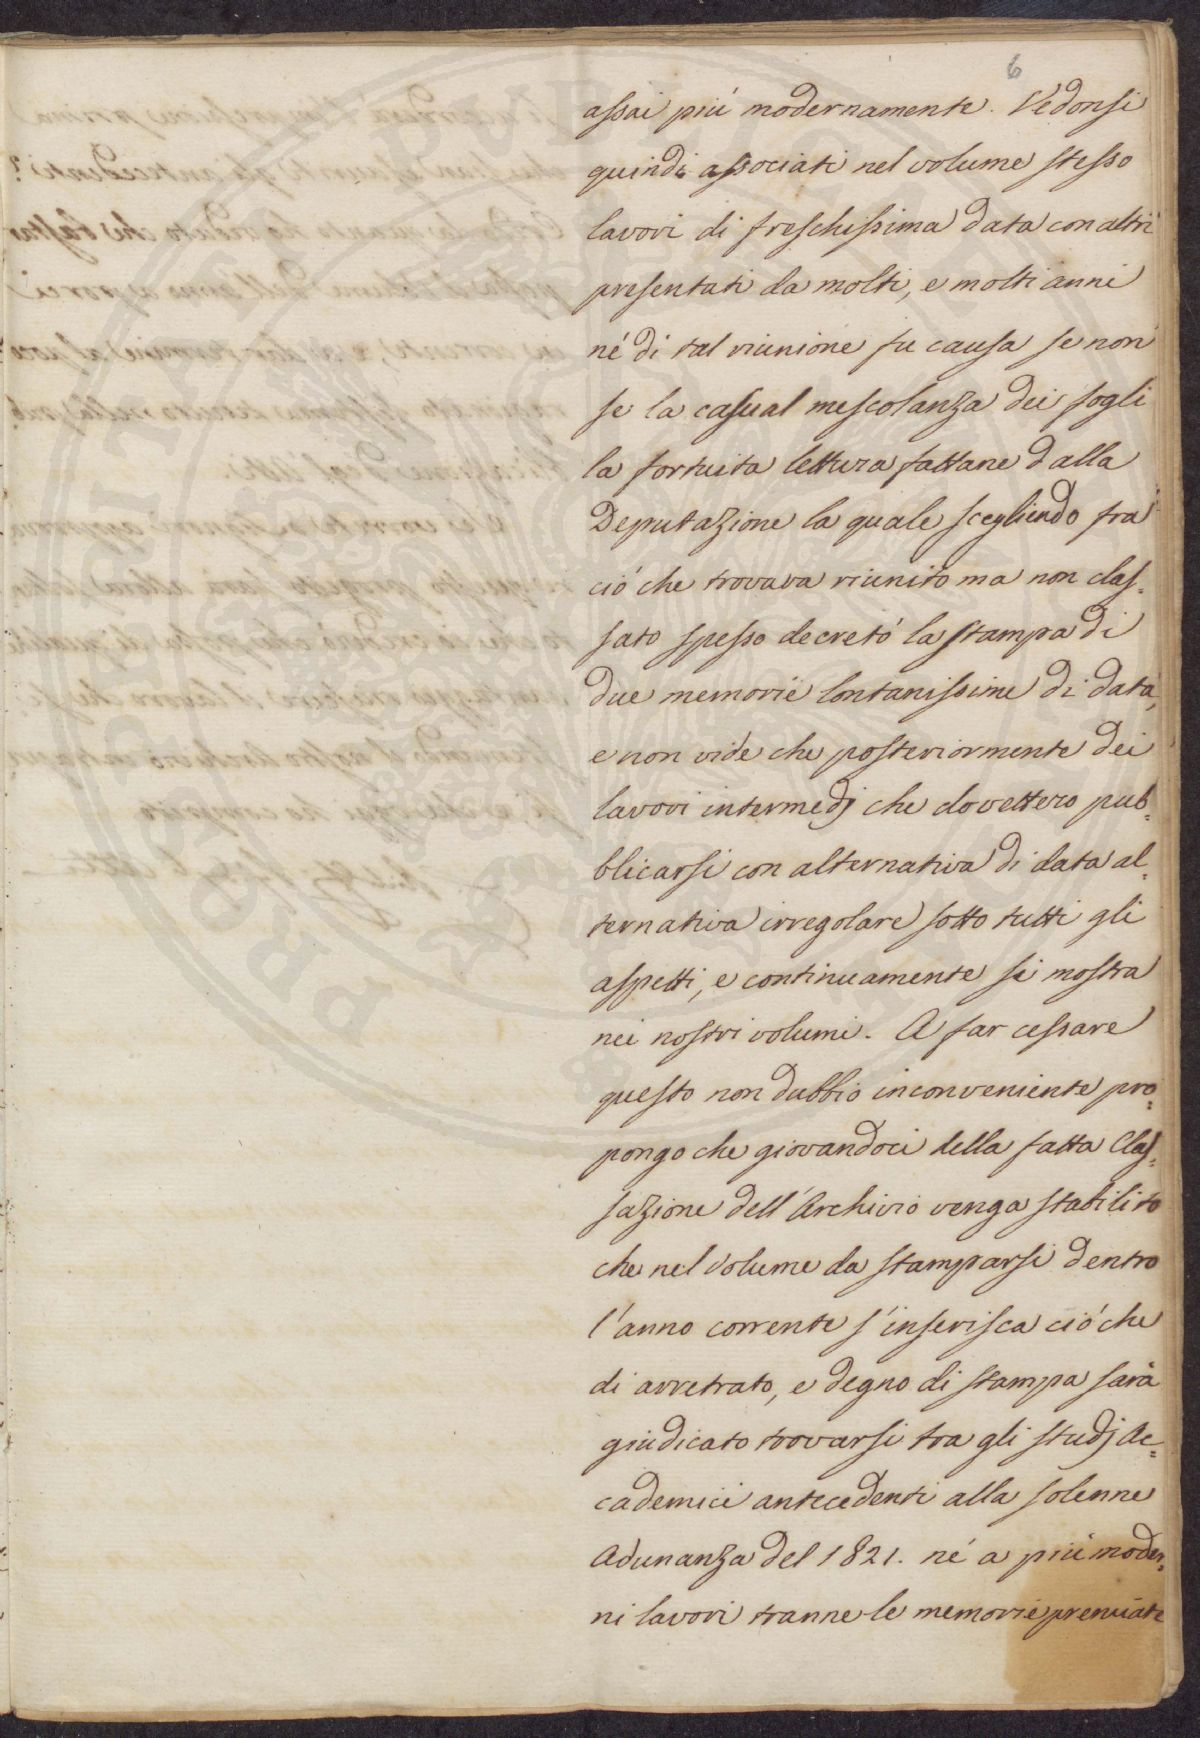 6
assai più modernamente. Vedonsi
quindi associati nel volume stesso
lavori di freschissima data con altri
presentati da molti, e molti anni
né di tal riunione fu causa se non
se la casual mescolanza dei fogli
la fortuita lettura fattane dalla
Deputazione la quale scegliendo fra
ciò che trovava riunito ma non clas=
sato spesso decretò la stampa di
due memorie lontanissime di data,
e non vide che posteriormente dei
lavori intermedj che dovettero pub=
blicarsi con alternativa di data al=
ternativa irregolare sotto tutti gli
aspetti, e continuamente si mostra
nei nostri volumi. A far cessare
questo non dubbio inconveniente pro=
pongo che giovandoci della fatta Clas=
sazione dell'Archivio venga stabilito
che nel Volume da stamparsi dentro
l'anno corrente s'inserisca ciò che
di arretrato, e degno di stampa sarà
giudicato trovarsi tra gli studj Ac=
cademici antecedenti alla solenne
Adunanza del 1821. né a più moder=
ni lavori tranne le memorie premiate